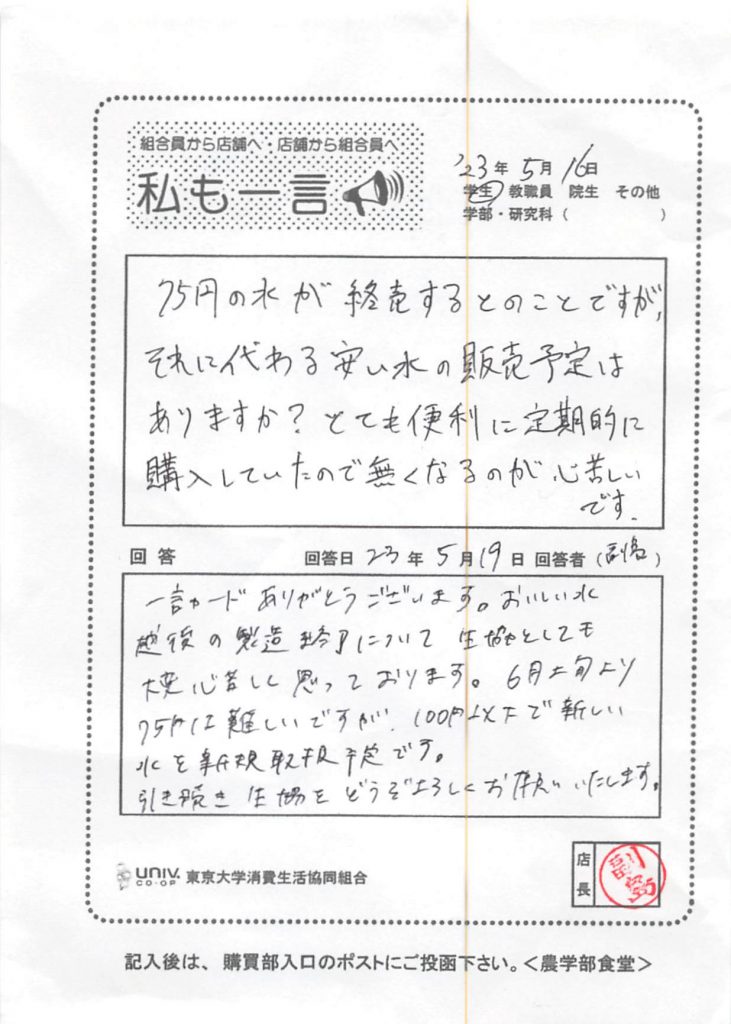 組合員から店舗へ・店舗から組合員へ
私も一言
'23年 5月 16日
学生 教職員 院生 その他
学部・研究科（ ）
75円の水が終売するとのことですが、
それに代わる安い水の販売予定は
ありますか？とても便利に定期的に
購入していたので無くなるのが心苦しい
です.
回答 回答日 23年 5月19日 回答者（副島）
一言カードありがとうございます。おいしい水
越後の製造終了について生協としても
大変心苦しく思っております。6月上旬より
75円は難しいですが、100円以下で新しい
水を新規取扱予定です。
引き続き生協をどうぞよろしくお願いいたします。
UNIV. CO-OP 東京大学消費生活協同組合
店長
記入後は、購買部入口のポストにご投函下さい。＜農学部食堂＞